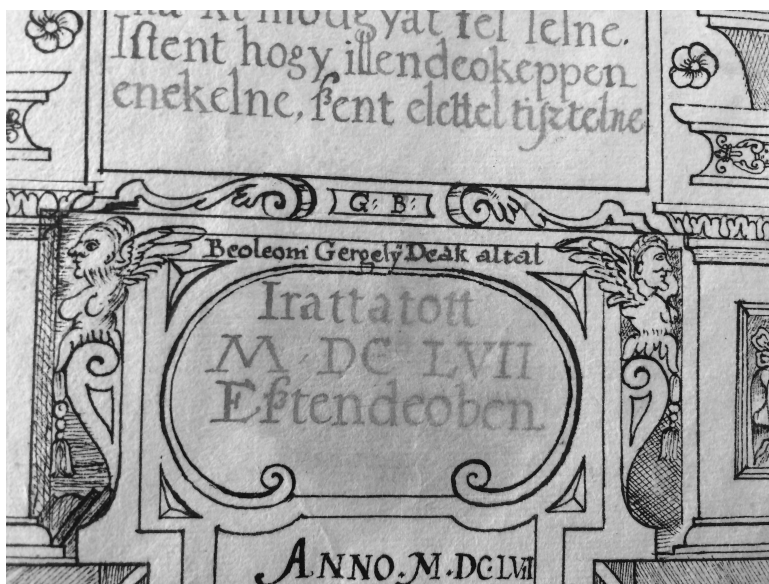 ki modgyat fel lelne.
Iſtent hogy illendeokeppen
enekelne, ſzent elettel tiſztelne
G: B:
Beoleoni Gergelÿ Deák altal
Irattatott
M · DC · LVII
Eſztendeoben
ANNO · M · DCLVII